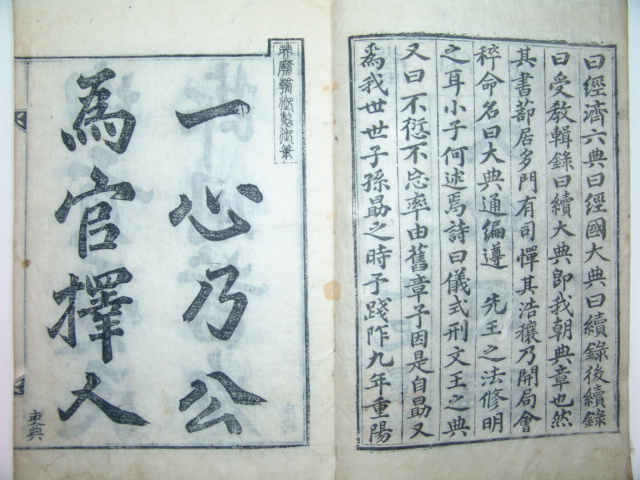 曰經濟六典曰經國大典曰續錄後續錄
曰受敎輯錄曰續大典卽我朝典章也然
其書節居多門有司憚其浩穰乃開局會
稡命名曰大典通編遵 先王之法修明
之耳小子何述焉詩曰儀式刑文王之典
又曰不愆不忘率由舊章予因是自勖又
爲我世世子孫勖之時予踐阼九年重陽
一心乃公
爲官擇人
吏典